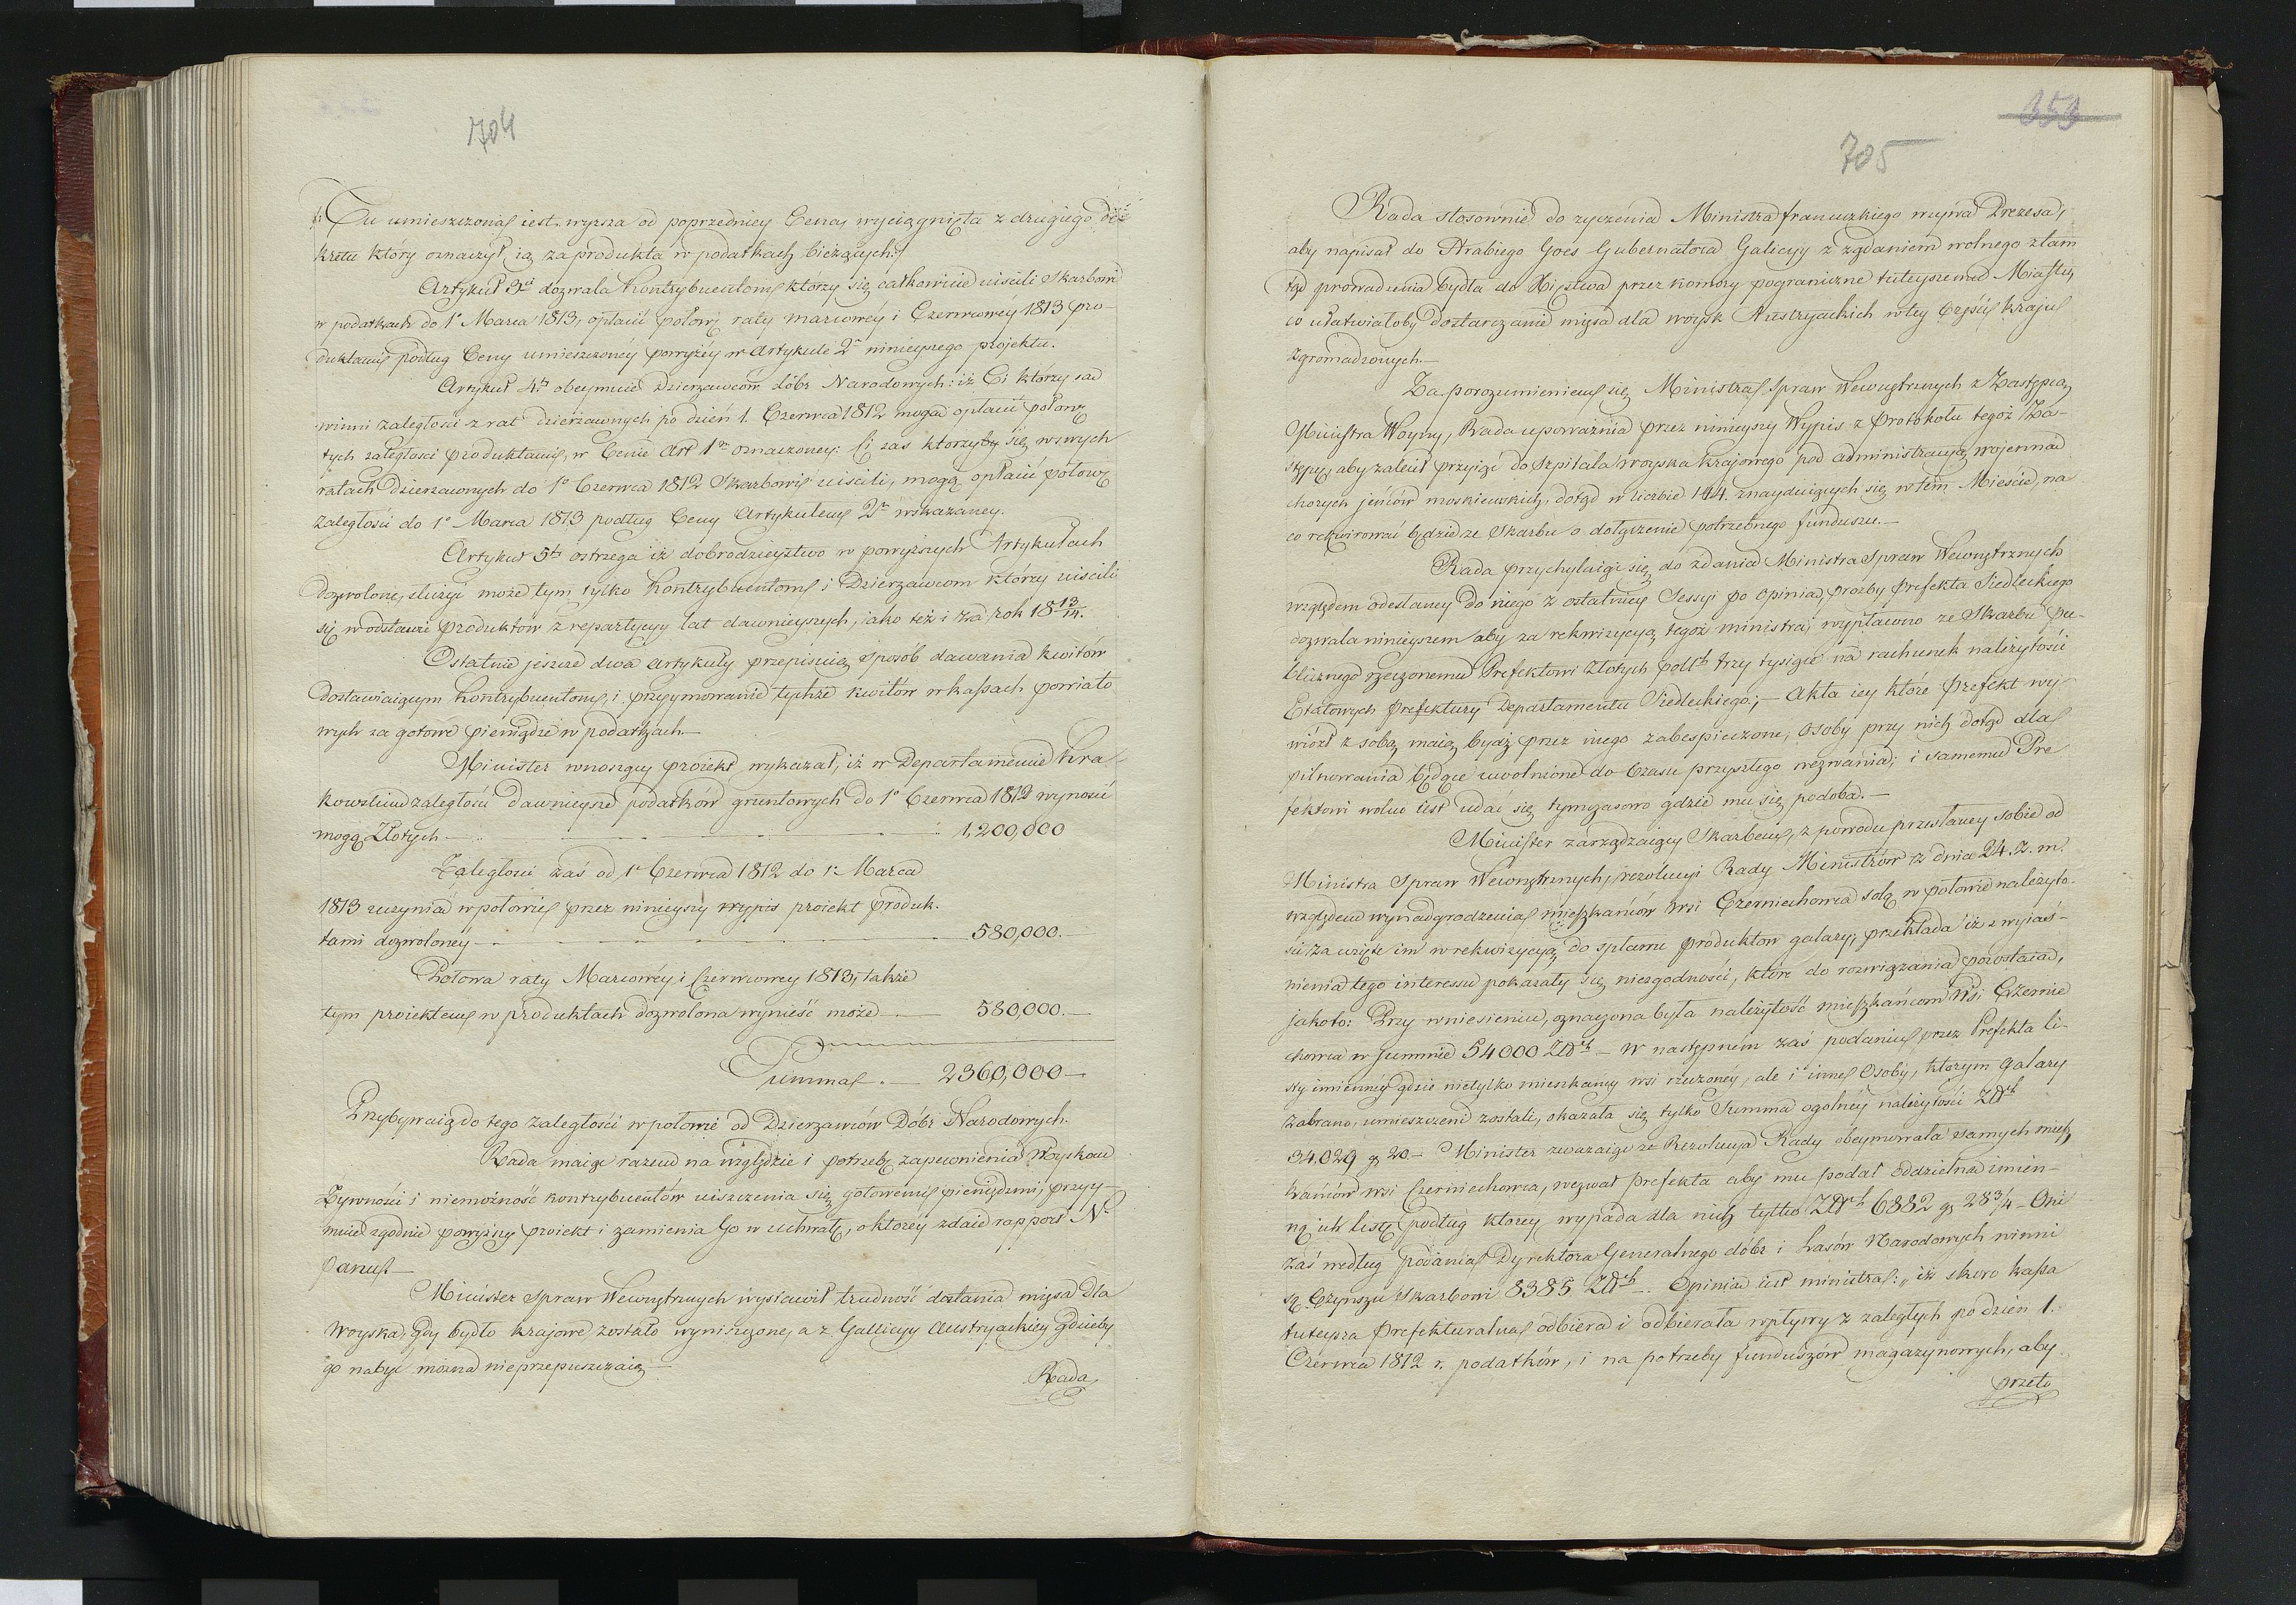 704
/: Tu umieszczona iest wyższa od poprzedniey Cena, wyciągnięta z drugiego de-
kretu który oznaczył ią za produkta w podatkach bieżących:/
Artykuł 3ci dozwala Kontrybuentom, którzy się całkowicie uiścili Skarbowi
w podatkach do 1o Marca 1813, opłacić połowę raty marcowéy i Czerwcowéy 1813 pro-
duktami podług Ceny umieszczonéy powyżéy w Artykule 2m ninieyszego projektu.
Artykuł 4ty obeymuie Dzierżawców dóbr Narodowych: iż Ci którzy są
winni zaległości z rat dzierżawnych po dzień 1. Czerwca 1812 mogą opłacić połowę
tych zaległości produktami, w Cenie Art 1m oznaczoney: Ci zaś którzyby się w swych
ratach dzierżawnych do 1o Czerwca 1812 Skarbowi uiścili, mogą opłacić połowę
zaległości do 1o Marca 1813 podług Ceny Artykułem 2m wskazaney.
Artykuł 5ty ostrzega iż dobrodzieystwo w powyższych Artykułach
dozwolone, służyć może tym tylko Kontrybuentom i Dzierżawcom którzy uiścili
się w odstawie produktów z repartycyy lat dawnieyszych, iako też i za rok 18 13/14.
Ostatnie jeszcze dwa artykuły przepisuią sposób dawania kwitów
dostawiaiącym Kontrybuentom, i przyymowanie tychże kwitów w kassach powiato
wych za gotowe pieniądze w podatkach.—
Minister wnoszący proiekt wykazał, iż w Departamencie Kra-
kowskim zaległości dawnieysze podatków gruntowych do 1o Czerwca 1812 wynosić
mogą Złotych — 1,200,000
Zaległości zaś od 1o Czerwca 1812 do 1o Marca
1813 uczynią w połowie przez ninieyszy wypis proiekt produk-
tami dozwoloney — 580,000.—
Połowa raty Marcowéy i Czerwcowey 1813, także
tym proiektem w produktach dozwolona wynieść może — 580,000.—
Summa.— 2360,000—
Przybywaią do tego zaległości w połowie od Dzierżawców Dóbr Narodowych.
Rada maiąc razem na względzie i potrzebę zapewnienia Woyskom
Żywności i niemożność kontrybuentów uiszczenia się gotowemi pieniędzmi, przyy-
muie zgodnie powyższy proiekt i zamienia Go w uchwałę, o któréy zdaie rapport N.
Panu.—
Minister Spraw Wewnętrznych wystawił trudność dostania mięsa dla
Woyska, Gdy bydło krajowe zostało wyniszczone, a z Gallicyy Austryackiey gdzieby
go nabyć można nie przepuszczaią.—
Rada
353
705
Rada stosownie do życzenia Ministra francuzkiego wzywa Prezesa,
aby napisał do Hrabiego Goes Gubernatora Galicyy z żądaniem wolnego ztam
tąd prowadzenia bydła do Xięstwa przez komory pograniczne tuteyszemu Miastu,
co ułatwiałoby dostarczanie mięsa dla woysk Austryackich w tey Części Kraju
zgromadzonych.—
Za porozumieniem się Ministra Spraw Wewnętrznych z Zastępcą
Ministra Woyny, Rada upoważnia przez ninieyszy Wypis z Protokołu tegoż Za-
stępcę, aby zalecił przyięcie do Szpitala Woyska Krajowego pod administracyą wojenną
chorych jeńców moskiewskich, dotąd w liczbie 144 znayduiących się w tém Mieście, na
co rekwirować będzie ze Skarbu o dołączenie potrzebnego funduszu.—
Rada przychylaiąc się do zdania Ministra Spraw Wewnętrznych
względem odesłaney do niego z ostatniey Sessyi po opinią, prośby Prefekta Siedleckiego
dozwala ninieyszem aby za rekwizycyą tegoż ministra, wypłacono ze Skarbu pu-
blicznego rzeczonemu Prefektowi Złotych polch trzy tysiące na rachunek należytości
Etatowych Prefektury Departamentu Siedleckiego;— Akta iey które Prefekt wy
wiózł z sobą maią bydź przez niego zabezpieczone, Osoby przy nich dotąd dla
pilnowania będące uwolnione do Czasu przyszłego wezwania; i samemu Pre
fektowi wolno iest udać się tymczasowo gdzie mu się podoba.—
Minister zarządzaiący Skarbem, z powodu przesłaney sobie od
Ministra Spraw Wewnętrznych, rezolucyi Rady Ministrów z dnia 24. z. m.
względem wynadgrodzenia mieszkańców wsi Czerniechowa solą w połowie należyto-
ści za wzięte im w rekwizycyą do spławu produktów galary; przekłada iż z wyiaś-
nienia tego interessu pokazały się niezgodności, które do rozwiązania pozostaią,
jakoto: Przy wniesieniu, oznaczona była należytość mieszkańcom Wsi Czernie
chowa w Summie 54000 Złch — W następnem zaś podaniu przez Prefekta li-
sty imiennéy gdzie nietylko mieszkańcy wsi rzeczonéy, ale i inne Osoby, którym galary
zabrano, umieszczeni zostali, okazała się tylko Summa ogólnéy należytości Złch
34.029 gr 20.— Minister zważaiąc że Rezolucya Rady obeymowała samych miesz
kańców wsi Czerniechowa, wezwał Prefekta aby mu podał oddzielną imien-
ną ich listę podług któréy wypada dla nich tylko Złch 6882 gr 28 3/4 — Oni
zaś według podania Dyrektora Generalnego dóbr i Lasów Narodowych winni
są Czynszu Skarbowi 8385 Złch —. Opinia iest ministra: „iż skoro kassa
tuteysza Prefekturalna odbiera i odbierała wpływy z zaległych po dzień 1.
Czerwca 1812 r. podatków, i na potrzeby funduszów magazynowych, aby
przeto